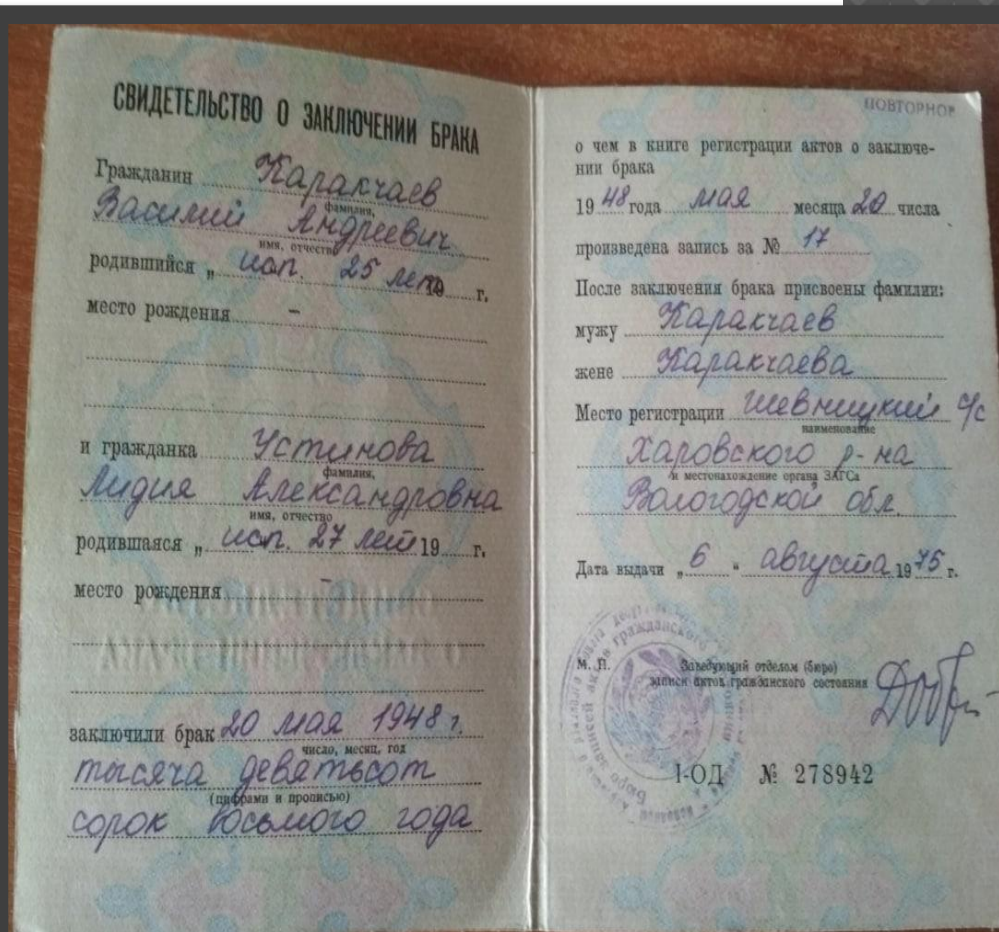 СВИДЕТЕЛЬСТВО О ЗАКЛЮЧЕНИИ БРАКА
Гражданин Каракчаев
фамилия,
Василий Андреевич
имя, отчество
родившийся „ исп. 25 лет 19 г.
место рождения –
и гражданка Устинова
фамилия,
Лидия Александровна
имя, отчество
родившаяся „ исп. 27 лет 19 г.
место рождения –
заключили брак 20 мая 1948 г.
число, месяц, год
тысяча девятьсот
(цифрами и прописью)
сорок восьмого года
ПОВТОРНОЕ
о чем в книге регистрации актов о заключе-
нии брака
19 48 года мая месяца 20 числа
произведена запись за № 17
После заключения брака присвоены фамилии:
мужу Каракчаев
жене Каракчаева
Место регистрации Шевницкий с/с
наименование
Харовского р-на
и местонахождение органа ЗАГСа
Вологодской обл.
Дата выдачи „ 6 “ августа 19 75 г.
М. П. Заведующий отделом (бюро)
записи актов гражданского состояния
I-ОД № 278942